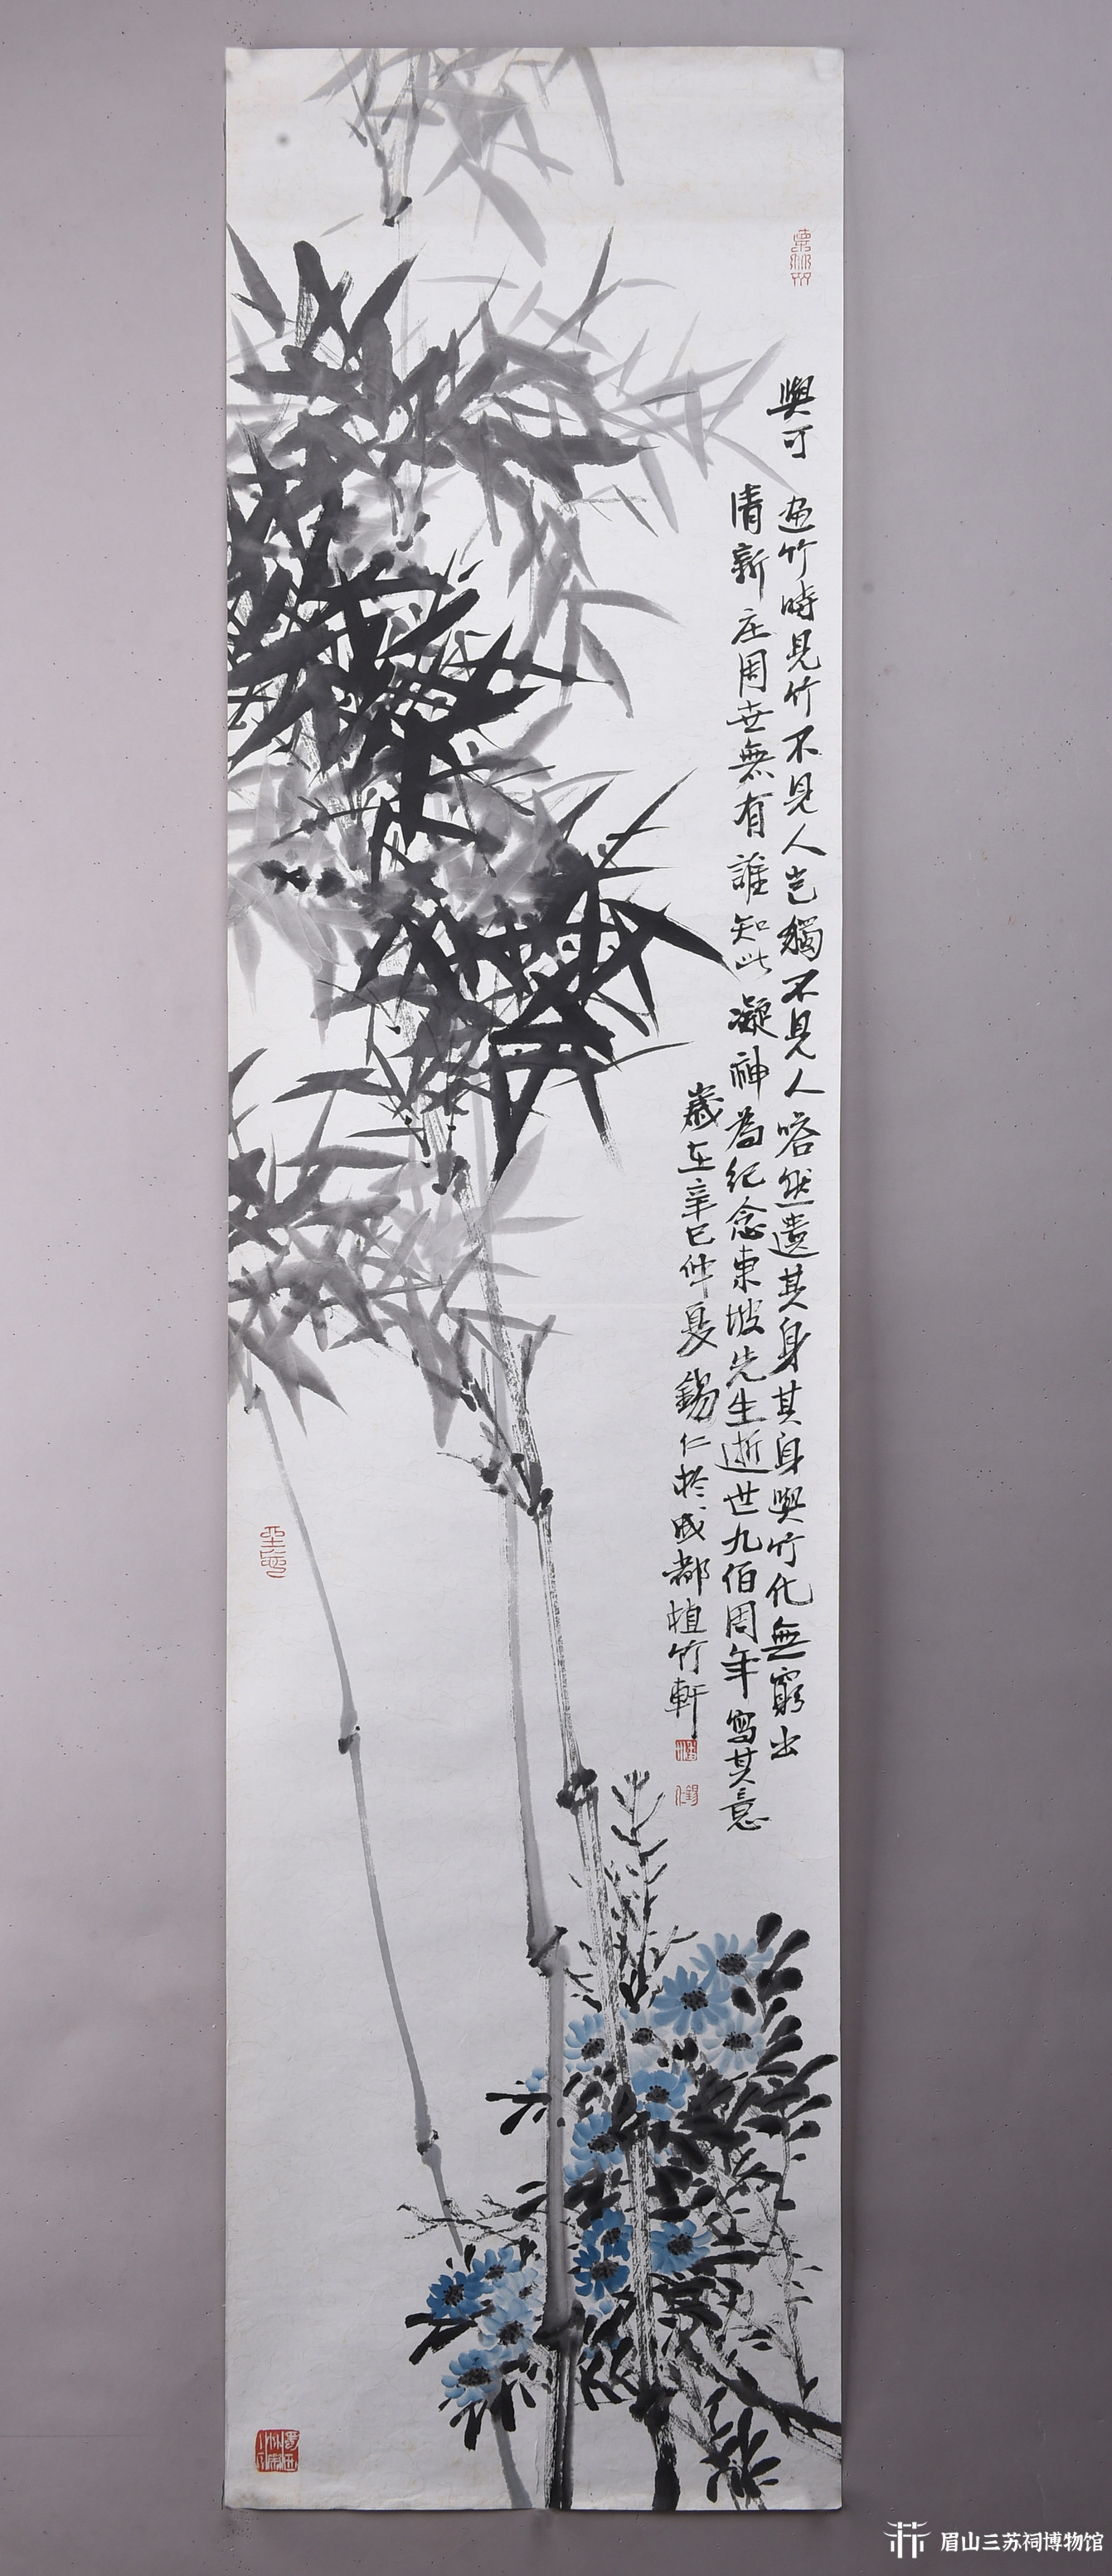 與可画竹時見竹不見人豈獨不見人嗒然遺其身其身與竹化無窮出
清新庄周世無有誰知此凝神為纪念東坡先生逝世九佰周年寫其意
歲在辛巳仲夏錫仁於成都植竹軒
眉山三苏祠博物馆